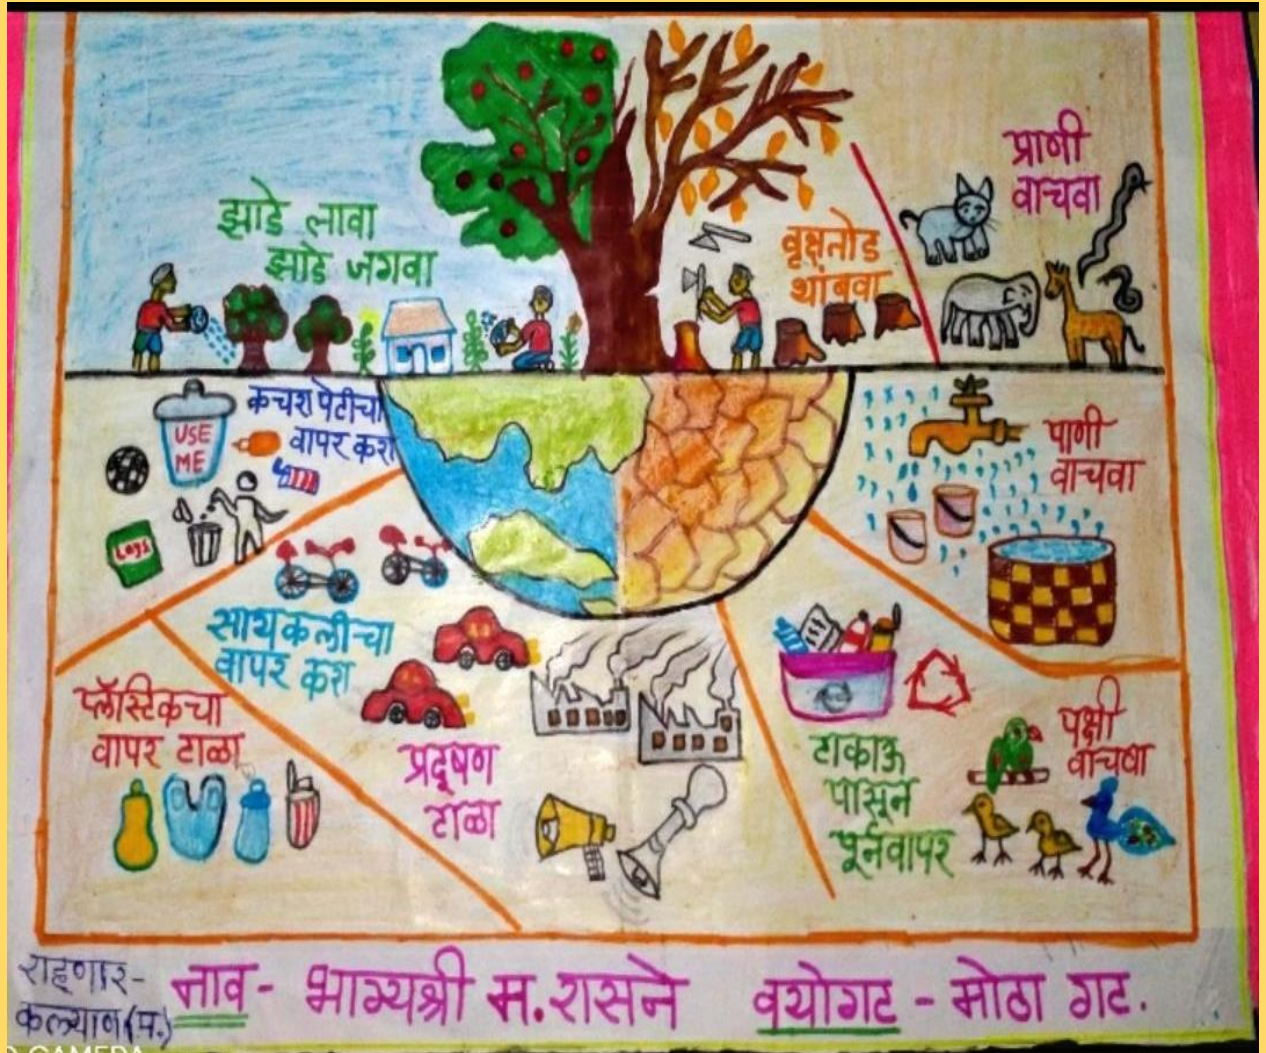 झाडे लावा
झाडे जगवा
वृक्षतोड
थांबवा
प्राणी
वाचवा
कचरा पेटीचा
वापर करा
USE
ME
Lays
पाणी
वाचवा
सायकलीचा
वापर करा
प्लॅस्टिकचा
वापर टाळा
प्रदूषण
टाळा
टाकाऊ
पासून
पूर्नवापर
पक्षी
वाचवा
राहणार-
कल्याण(प.)
नाव - भाग्यश्री म. रासने वयोगट - मोठा गट.
CAMERA